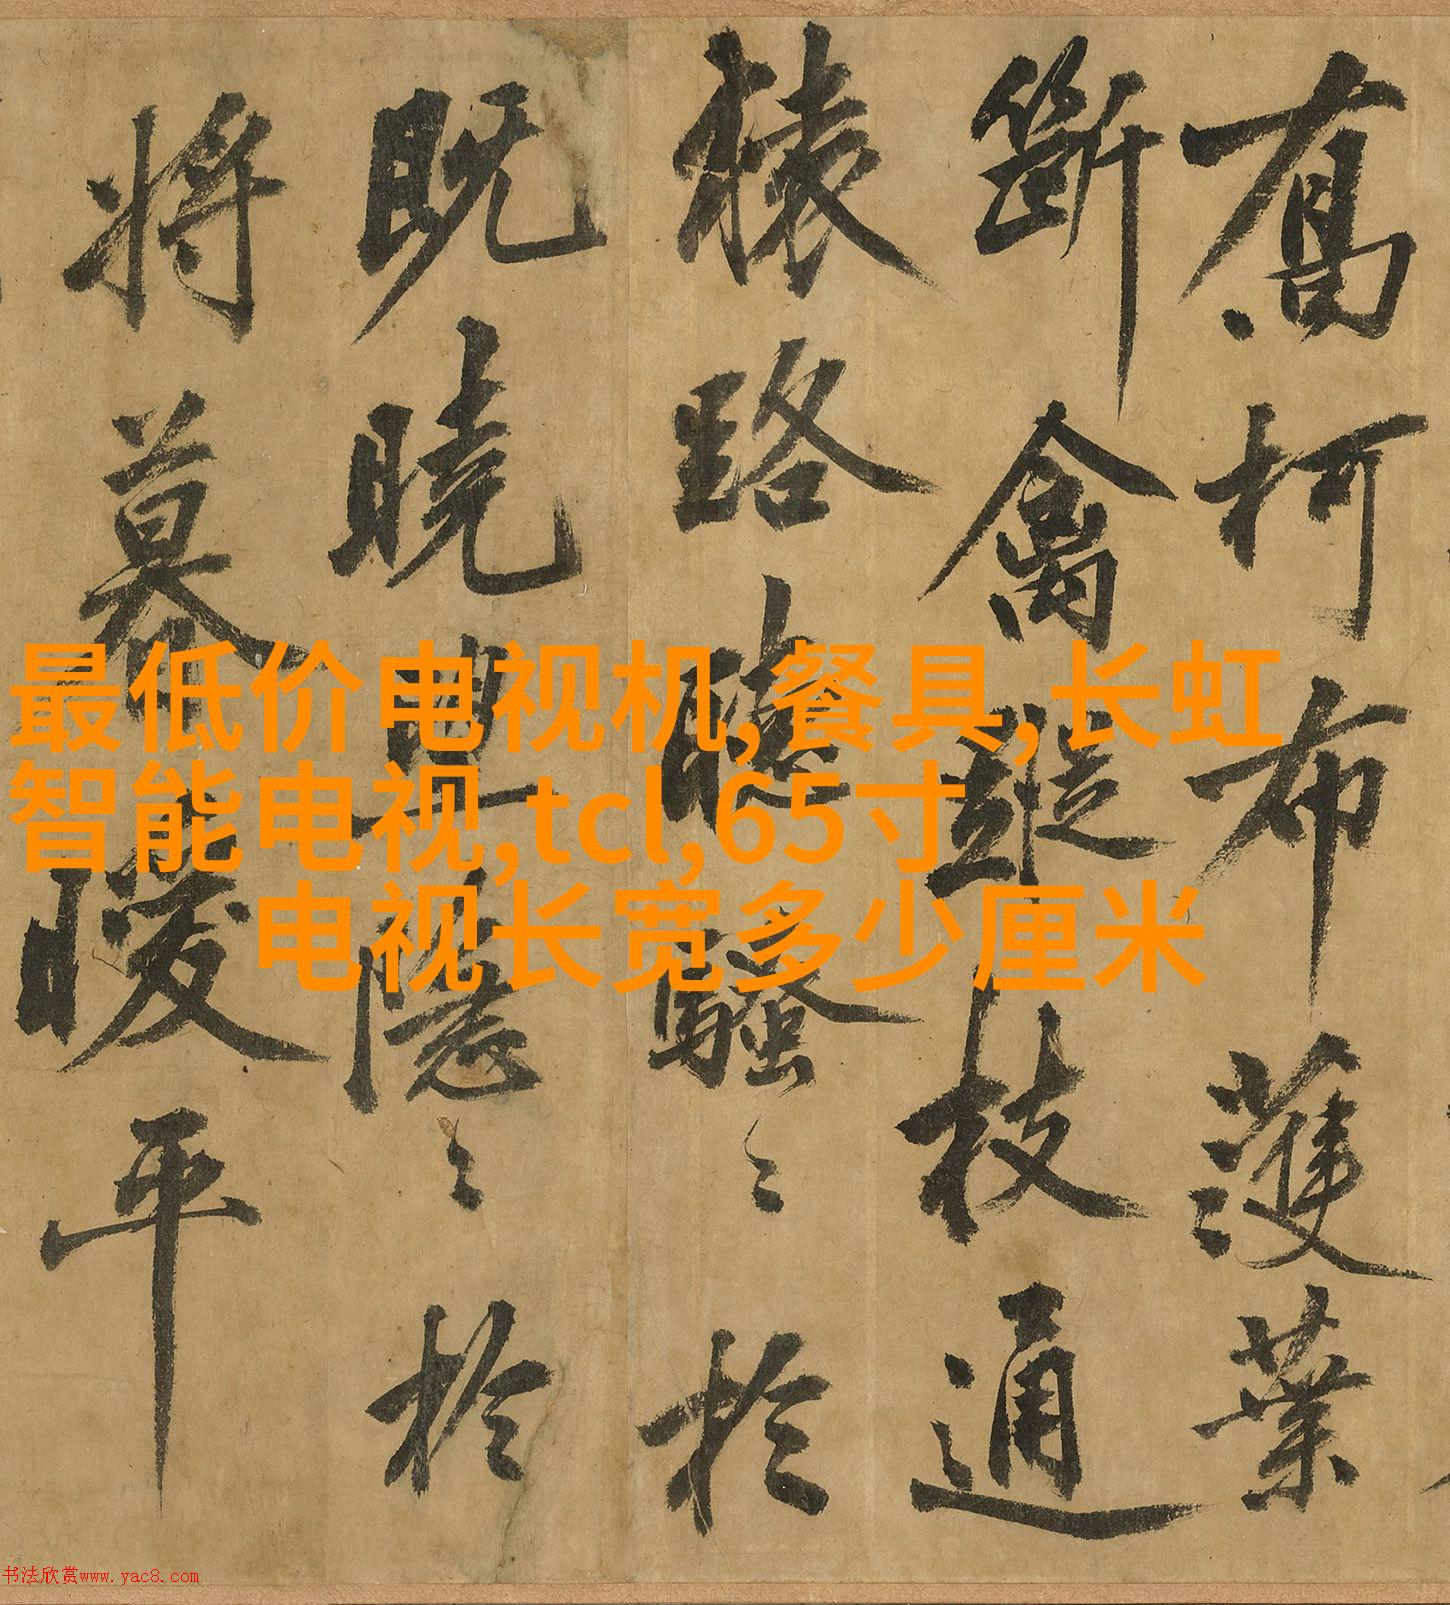 喬柯布濩葉
斷禽蹤枝通
猿路聽騷〻於
既曉望隱〻於
將暮暖平
最低价电视机,餐具,长虹
智能电视,tcl,65寸
电视长宽多少厘米
书法欣赏www.yac8.com